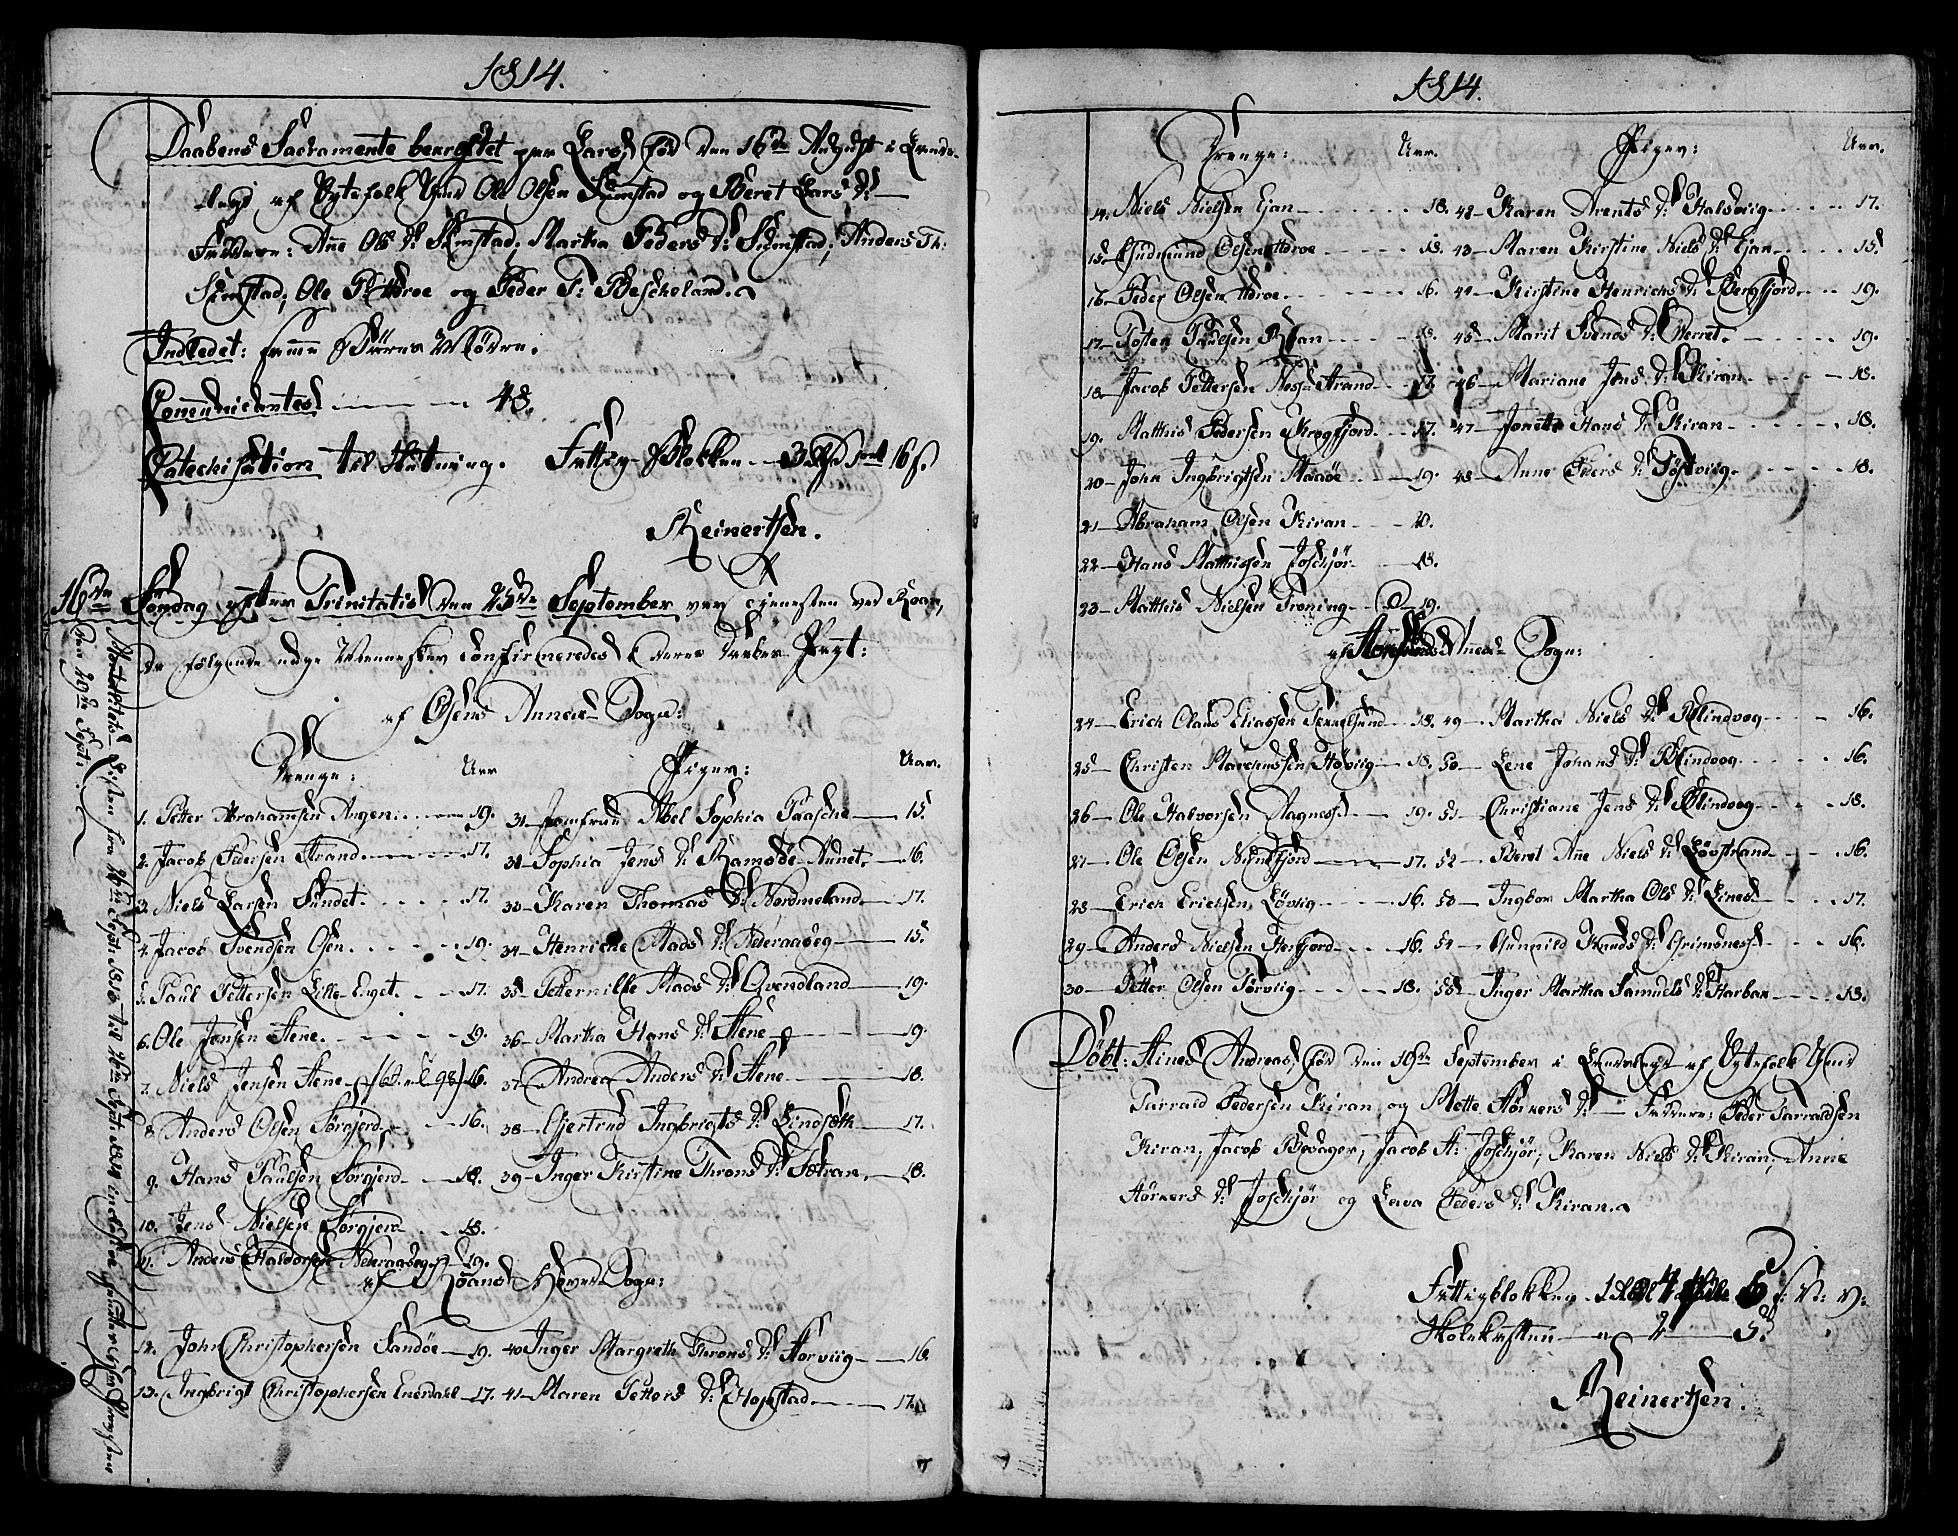 1814.
Daabens Sacramente beuræftet paa Lars, fød den 16de August i
af Ægtefolk Gmd Ole Olsen Sumstad og Beret Lars D:
Faddere: Ane Ols D: Sumstad, Martha Peders D: Sumstad; Anders Th:
Sumstad, Ole og Peder T: Bescheland.
Indledet: samme Barns Moder.
Communicantes 48.
Catechisation til Slutning. Fattig-Blokken 3 16 s.
Reinertsen.
16de Søndag efter Trinitatis den 25de September var Tjenesten ved Roan,
da følgende unge Mennesker Confirmeredes i deres Daabes Pagt:
af Osens Annexe Sogn:
Drenge: Aar Piger: Aar.
1. Petter Abrahamsen Angen. 19. 31 Jomfrue Abel Sophia Paasche 15.
2. Jacob Pedersen Strand 17. 32 Sophia Jens D: Ramsøe-Aunet. 16.
3. Niels Larsen Sundet. 17. 33 Karen Thomas D: Nordmeland 17.
4. Jacob Svendsen Osen. 19. 34 Henriche Mads D: Nederaaseg 15.
5. Paul Pettersen Lille-Enget. 17. 35 Petternille Mads D: Qvendland 19.
6. Ole Jensen Stene. 19. 36 Martha Hans D: Stene 19.
7. Niels Jensen Stene 16. 37 Andrea Anders D: Stene 18.
8. Anders Olsen Sørgjerd 16. 38 Gjertrud Ingbrigts D: Lindsæth 17.
9. Hans Paulsen Sørgjerd 18. 39 Inger Kirstine Throns D: Sætran 18.
10. Jens Nielsen Sørgjerd 18.
11. Anders Haldorsen Nederaaseg 19.
af Roans Hoved-Sogn:
12. John Christophersen Sandøe 19. 40 Inger Margreth Throns D: Storviig 16.
13. Ingbrigt Christophersen Enesdahl 17. 41 Maren Petters D: Hopstad 17.
1814.
Drenge: Aar. Piger: Aar.
14. Niels Nielsen Ejan 18. 42 Karen Arents D: Halsviig 17.
15. Gudmund Olsen 18. 43 Maren Kirstine Niels D: Ejan 15.
16 Peder Olsen 16. 44 Kirstine Henrichs D: Bergfjord 19.
17 Tosten Paulsen 18. 45 Marit Svends D: Værret 19.
18. Jacob Pettersen Nesse-Strand 17. 46 Mariane Jens D: Kiran 18.
19. Matthis Pedersen Krogfjord 17. 47 Jonetta Hans D: Kiran 18.
20 John Ingbrigtsen 19. 48 Anne Peders D: Tøftviig 18.
21 Abraham Olsen Kiran 20.
22 Hans Matthissen Joschjør 18.
23 Matthis Nielsen Troning 19.
af Annexe Sogn:
24 Erich Olaus Eliassen Terrelsund 18. 49 Martha Niels D: Blindvog 16.
25 Christen Marchussen Høiviig 18. 50 Lene Johans D: Blindvog 16.
26 Ole Halvorsen Ragnes 19. 51 Christiane Jens D: Blindvog 18.
27 Ole Olsen Nundfjord 17. 52 Beret Ane Niels D: Løvstrand 16.
28 Erich Erichsen Løviig 16. 53 Ingbor Martha Ols D: Lines 17.
29 Anders Nielsen Herfjord 16. 54 Gunnild Knuds D: Grimsnes 16.
30 Petter Olsen Sørviig 18. 55 Inger Martha Samuels D: Harbak 18.
Døbt: Stines Andreas, fød den 19de September i af Ægtefolk Gmd
Tarrald Pedersen Kiran og Mette Størkers D: Faddere: Peder Tarraldsen
Kiran, Jacob Bessager, Jacob A: Joschjør, Karen Niels D: Kiran, Anne
Størkers D: Joschjør og Lava Peders D: Kiran.
Fattigblokken 1 4 6 s: D: V:
Skolekassen 2 5
Reinertsen.